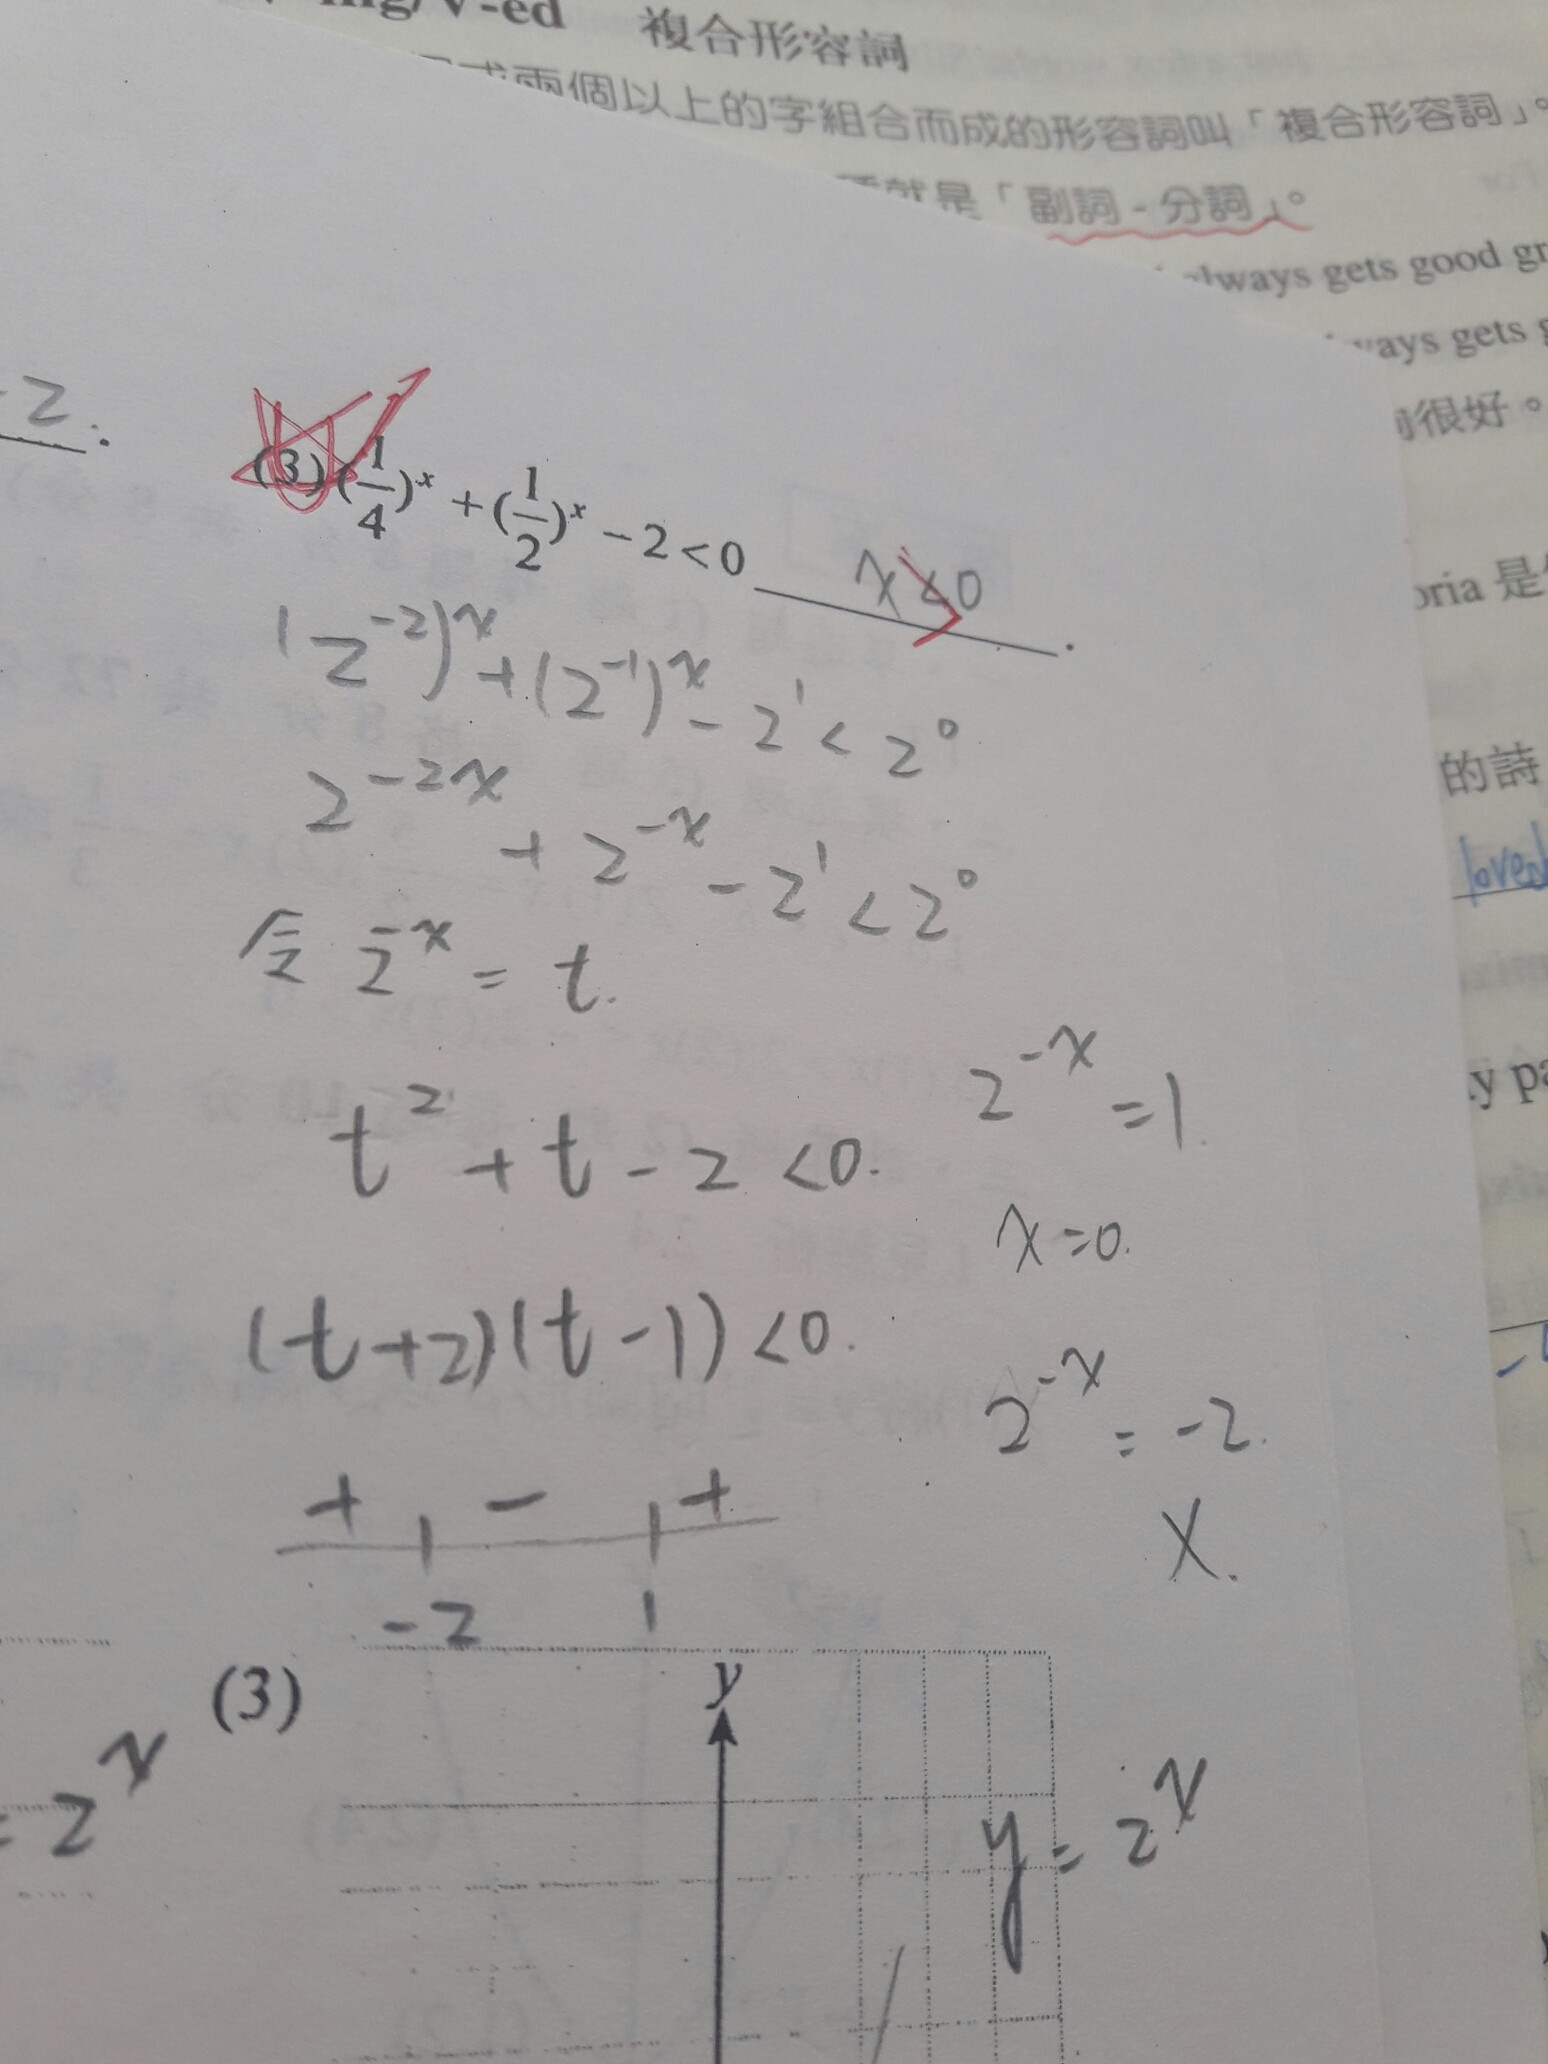 V-ed 複合形容詞
兩個以上的字組合而成的形容詞叫「複合形容詞」。
就是「副詞-分詞」。
always gets good
gets
很好。
是
的詩
loved
2.
(3) (1/4)^x + (1/2)^x - 2 < 0 x<0 .
(2^-2)^x + (2^-1)^x - 2^1 < 2^0
2^-2x + 2^-x - 2^1 < 2^0
令 2^-x = t.
t^2 + t - 2 < 0.
(t+2)(t-1) < 0.
+ - +
-2 1
2^-x = 1.
x = 0.
2^-x = -2.
X.
(3)
y
= 2^x
y = 2^x